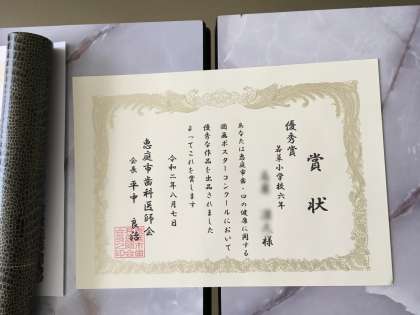 賞状
優秀賞
若草小学校六年
様
あなたは恵庭市歯・口の健康に関する
図画ポスターコンクールにおいて
優秀な作品を出品されました
よってこれを賞します
令和二年八月七日
恵庭市歯科医師会
会長 平中良治